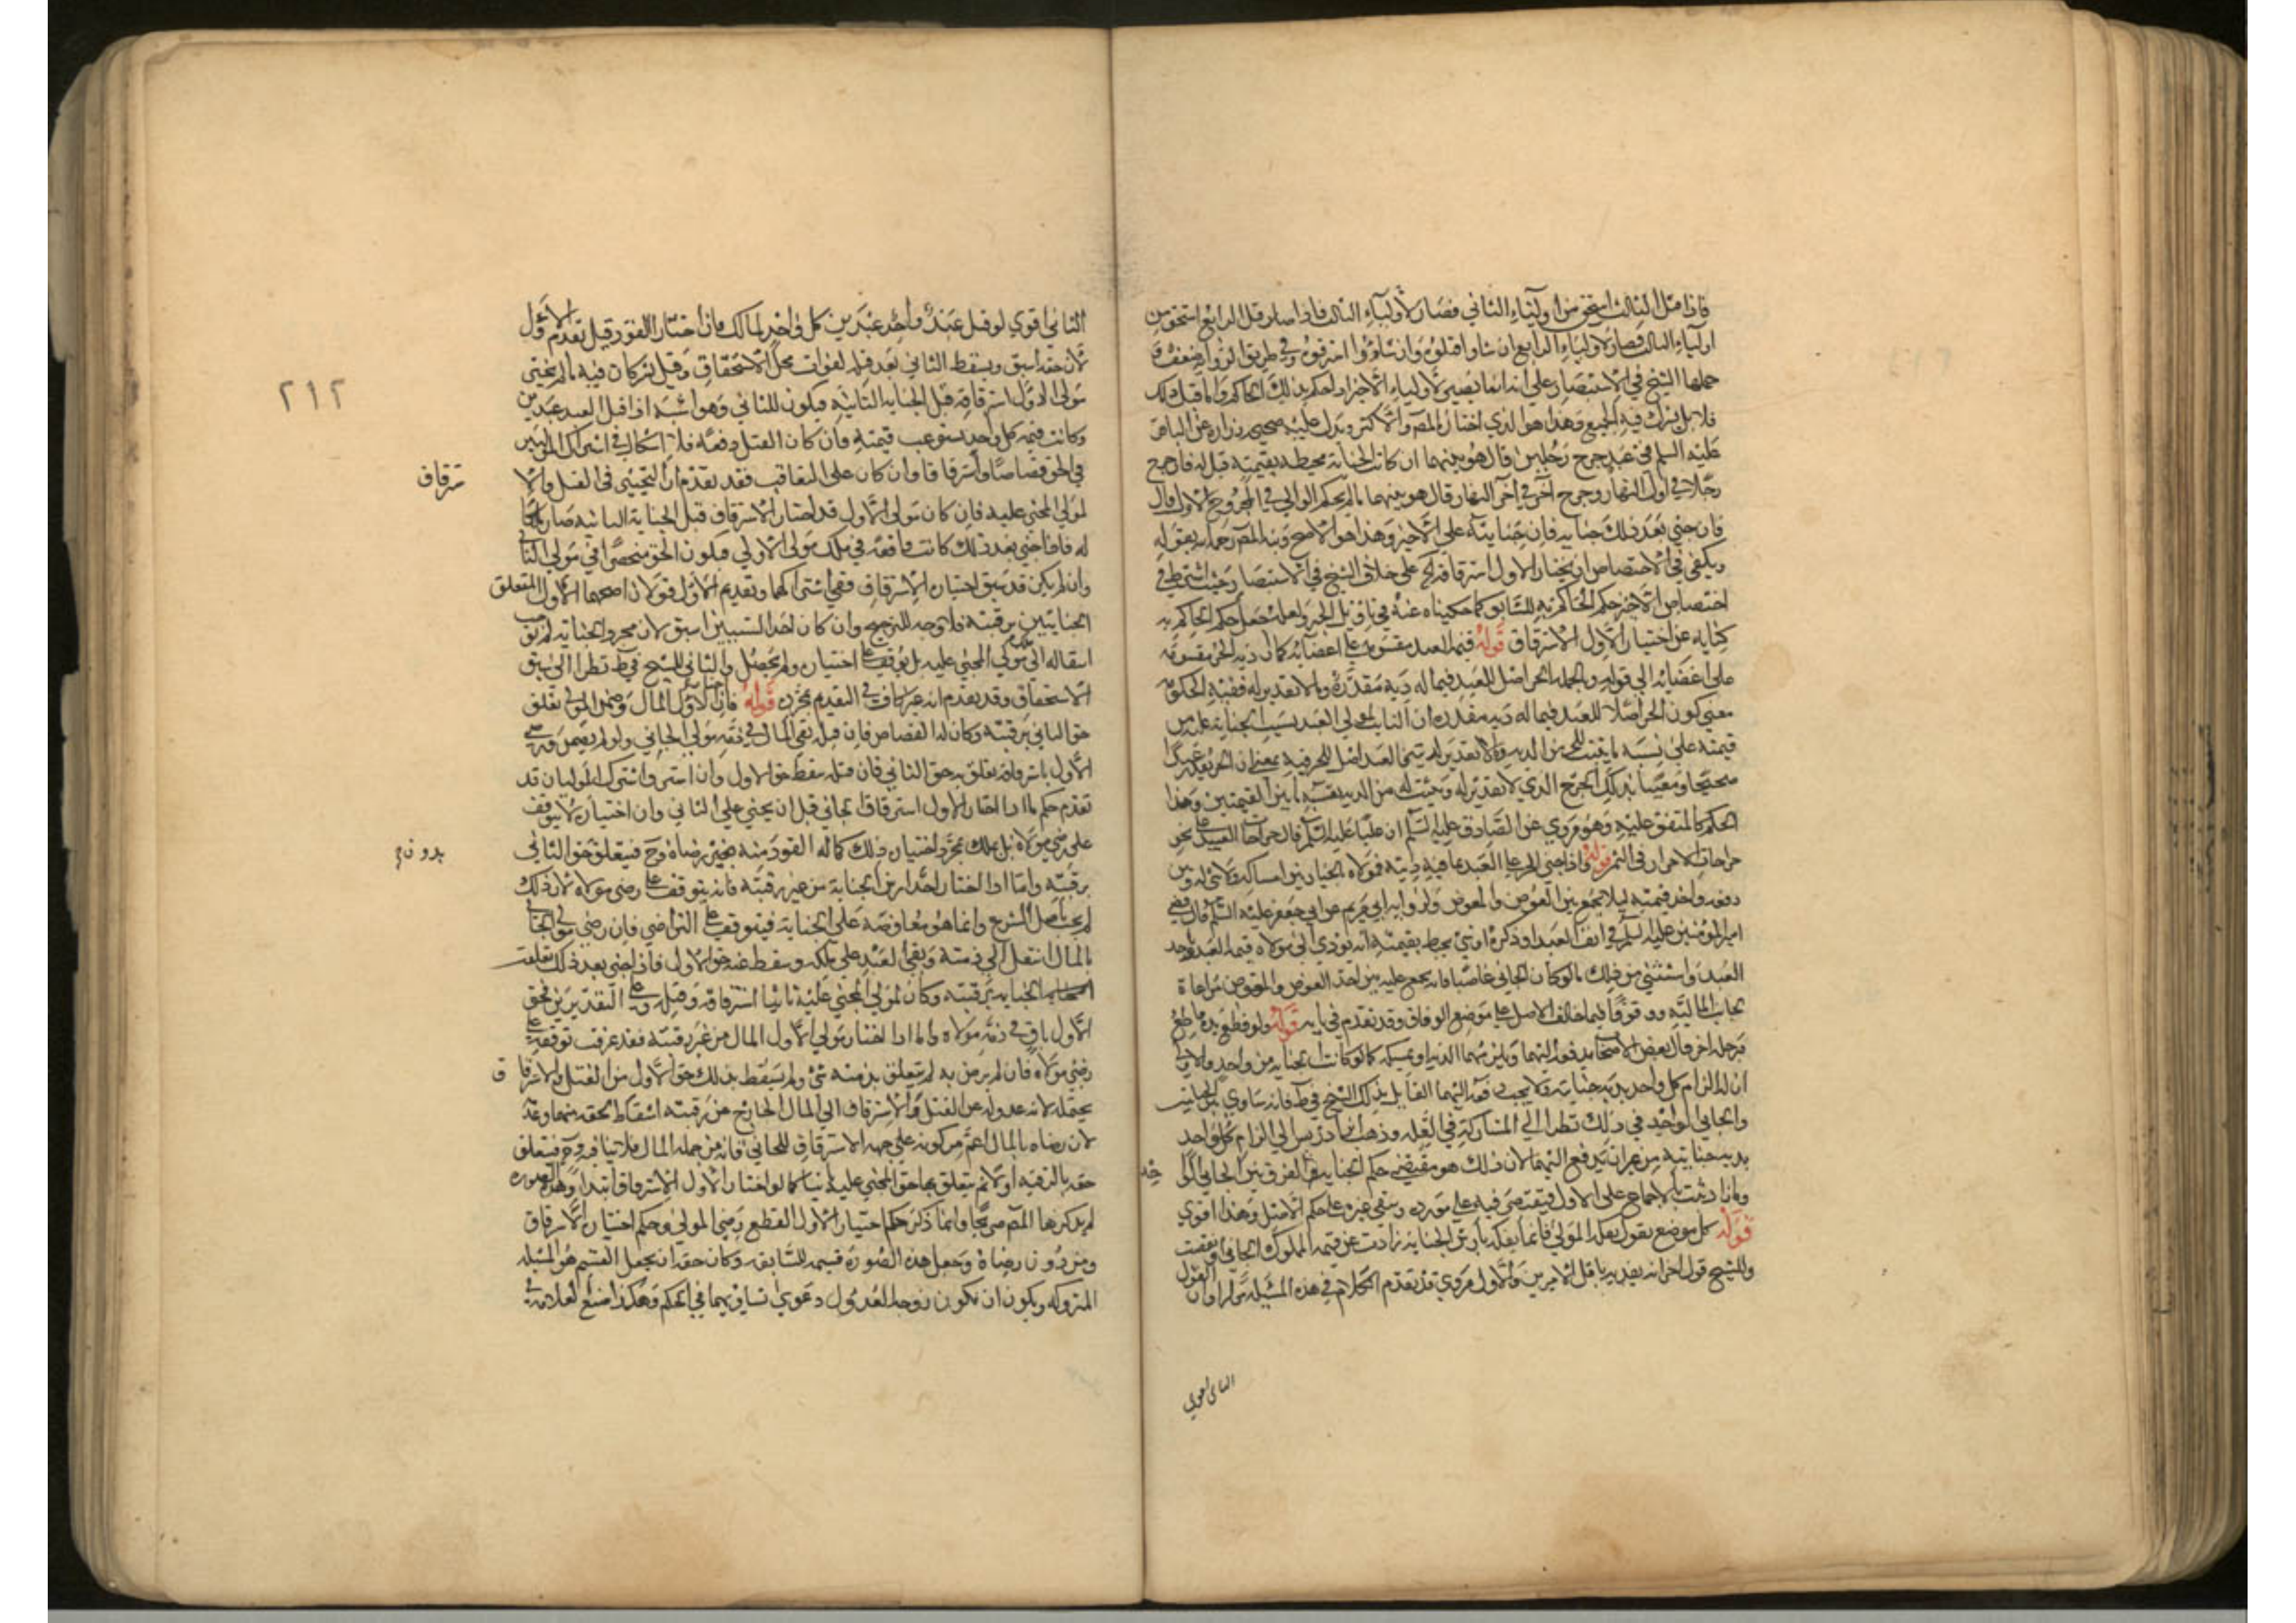 فاذا قتل الثالث استحق من اولياء الثاني فصار لاولياء الثالث فاذا صار قتل الرابع استحق من
اولياء الثالث فصار لاولياء الرابع ان شاوا قتلوه وان شاوا استرقوه وفي طريق الرواية ضعف
حملها الشيخ في الاستبصار على انه انما يصير لاولياء الاخير اذا حكم بذلك الحاكم واما قبل ذلك
فلا بل يشترك فيه الجميع وهذا هو الذي اختاره المصـ والاكثر ويدل عليه صحيحة زرارة عن الباقر
عليه السلم في عبد جرح رجلين قال هو بينهما ان كانت الجناية محيطة بقيمته قيل له فان جرح
رجلا في اول النهار وجرح آخر في آخر النهار قال هو بينهما ما لم يحكم الوالي في المجروح الاول قال
فان جنى بعد ذلك جناية فان جنايته على الاخير وهذا هو الاصح ونبه المصـ بقوله
ويكفي في الاختصاص ان يختار الاول استرقاقه على خلاف الشيخ في الاستبصار حيث اشترط في
اختصاص الاخير حكم الحاكم به للسابق كما حكيناه عنه في تاويل الخبر ولعله جعل حكم الحاكم به
كناية عن اختيار الاول الاسترقاق قوله قيمة العبد مقسومة على اعضائه كما ان دية الحر مقسومة
على اعضائه الى قوله وبالجملة الحر اصل للعبد فيما له دية مقدرة وما لا تقدير له ففيه الحكومة
معنى كون الحر اصلا للعبد فيما له دية مقدرة ان الثابت لمولى العبد بسبب الجناية عليه من
قيمته على نسبة ما يثبت للحر من الدية وما لا تقدير له فيهما العبد اصل للحر فيه بمعنى ان الحر يفرض عبدا
صحيحا ومعيبا بذلك الجرح الذي لا تقدير له ويثبت له من الدية بنسبة ما بين القيمتين وهذا
الحكم كالمتفق عليه وهو مروي عن الصادق عليه السلم ان عليا عليه السلم قال جراحات العبيد على نحو
جراحات الاحرار في الثمن قوله واذا جنى الحر على العبد بما فيه ديته فمولاه بالخيار بين امساكه ولا شي له وبين
دفعه واخذ قيمته ليلا يجمع بين العوض والمعوض ولرواية ابي مريم عن ابي جعفر عليه السلم قال قضى
امير المومنين عليه السلم في انف العبد او ذكره او شي يحيط بقيمته انه يودي الى مولاه قيمة العبد وياخذ
العبد واستثنى من ذلك ما لو كان الجاني غاصبا فانه يجمع عليه بين اخذ العوض والمعوض مراعاة
لجانب المالية ووقوفا فيما خالف الاصل على موضع الوفاق وقد تقدم في بابه قوله ولو قطع يده قاطع
ورجله آخر قال بعض الاصحاب يدفعه اليهما ويلزمهما الدية او يمسكه كما لو كانت الجناية من واحد والاولى
ان له الزام كل واحد بدية جنايته ولا يجب دفعه اليهما القايل بذلك الشيخ في ط فانه ساوى بين الجانيين
والجاني الواحد في ذلك نظرا الى المشاركة في العلة وذهب ابن ادريس الى الزام كل واحد
بدية جنايته من غير ان يدفع اليهما لان ذلك هو مقتضى حكم الجناية والفرق بين الجاني الواحد
وما زاد ثبت بالاجماع على الاول فيقتصر فيه على مورده ويبقى غيره على حكم الاصل وهذا اقوى
قوله كل موضع نقول يفكه المولى فانما يفكه بارش الجناية زادت عن قيمة المملوك الجاني او نقصت
وللشيخ قول آخر انه يفديه باقل الامرين والاول مروي قد تقدم الكلام في هذه المسئلة مرارا وان القول
الثاني اقوى
٢١٢
الثاني اقوى لو قتل عبد واحد عبدين كل واحد لمالك فان اختار القود قيل تقدم الاول
لان حقه اسبق ويسقط الثاني بعد قتله لفوات محل الاستحقاق وقيل يشتركان فيه ما لم يختر
مولى الاول استرقاقه قبل الجناية الثانية فيكون للثاني وهو اشبه اذا قتل العبد عبدين
وكانت قيمة كل واحد يستوعب قيمته فان كان القتل دفعة فلا اشكال في اشتراك الموليين
في الحق قصاصا واسترقاقا وان كان على التعاقب فقد تقدم ان التخيير في القتل والا
سترقاق
لمولى المجني عليه فان كان مولى الاول قد اختار الاسترقاق قبل الجناية الثانية صار ملكا
له فاذا جنى بعد ذلك كانت واقعة في ملك مولى الاول فيكون الحق منحصرا في مولى الثاني
وان لم يكن قد سبق اختياره الاسترقاق ففي اشتراكهما وتقديم الاول قولان اصحهما الاول لتعلق
الجنايتين برقبته فلا وجه للترجيح وان كان احد السببين اسبق لان مجرد الجناية لم توجب
انتقاله الى مولى المجني عليه بل يتوقف على اختياره ولم يحصل والثاني للشيخ في ط نظرا الى سبق
الاستحقاق وقد تقدم انه غير كاف في التقديم بمجرده قوله فان اختار الاول المال وضمن المولى تعلق
حق الثاني برقبته وكان له القصاص فان قتله بقي المال في ذمة مولى الجاني ولو لم يضمن ورضي
الاول باسترقاقه تعلق به حق الثاني فان قتله سقط حق الاول وان استرق اشترك الموليان قد
تقدم حكم ما اذا اختار الاول استرقاق الجاني قبل ان يجني على الثاني وان اختياره لا يتوقف
على رضى مولاه بل يملك بمجرد اختياره ذلك كما له القود منه بغير رضاه وح فيتعلق حق الثاني
بدون
برقبته واما اذا اختار اخذ ارش الجناية من غير رقبته فانه يتوقف على رضى مولاه لان ذلك
لم يجب باصل الشرع وانما هو معاوضة على الجناية فيتوقف على التراضي فان رضي مولى الجاني
بالمال انتقل الى ذمته وبقي العبد على ملكه وسقط عنه حق الاول فاذا جنى بعد ذلك تعلقت
الجناية برقبته وكان لمولى المجني عليه ثانيا استرقاقه وقتله وعلى التقديرين فحق
الاول باق في ذمة مولاه واما اذا اختار مولى الاول المال من غير رقبته فقد عرفت توقفه على
رضى مولاه فان لم يرض به لم يتعلق بذمته شي ولم يسقط بذلك حق الاول من القتل والاسترقاق
يحتمله لانه عدوله عن القتل والاسترقاق الى المال الخارج من رقبته اسقاط لحقه منهما وعدمه
لان رضاه بالمال اعم من كونه على جهة الاسترقاق للجاني فانه من جملة المال فلا ينافيه وح فيتعلق
حقه بالرقبة اولا ثم يتعلق بها حق المجني عليه ثانيا كما لو اختار الاول الاسترقاق ابتدا وهذه الصورة
لم يذكرها المصـ صريحا وانما ذكر حكم اختيار الاول القطع رضى المولى وحكم اختياره الاسترقاق
ومن دون رضاه وجعل هذه الصورة قسيمة للسابقه وكان حقه ان يجعل القسيم هو المسئلة
المتروكة ويكون ان يكون وجه العدول دعوى تساويهما في الحكم وهكذا صنع العلامة في